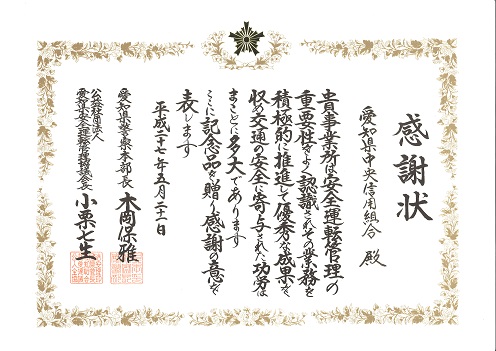 感謝状
愛知県中央信用組合 殿
貴事業所は安全運転管理の
重要性をよく認識されその業務を
積極的に推進して優秀な成果を
収め交通の安全に寄与された功労は
まことに多大であります
ここに記念品を贈り感謝の意を
表します
平成二十七年五月二十一日
愛知県警察本部長 木岡保雅
公益財団法人
愛知県安全運転管理協議会会長 小栗七生